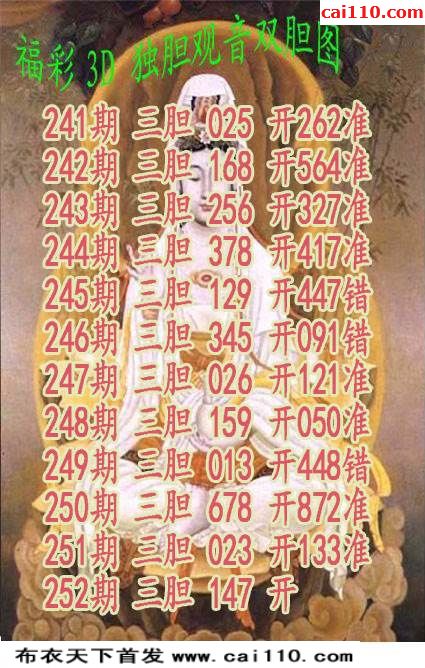 cai110.com
福彩 3D 独胆观音双胆图
241期 三胆 025 开262准
242期 三胆 168 开564准
243期 三胆 256 开327准
244期 三胆 378 开417准
245期 三胆 129 开447错
246期 三胆 345 开091错
247期 三胆 026 开121准
248期 三胆 159 开050准
249期 三胆 013 开448错
250期 三胆 678 开872准
251期 三胆 023 开133准
252期 三胆 147 开
布衣天下首发 www.cai110.com